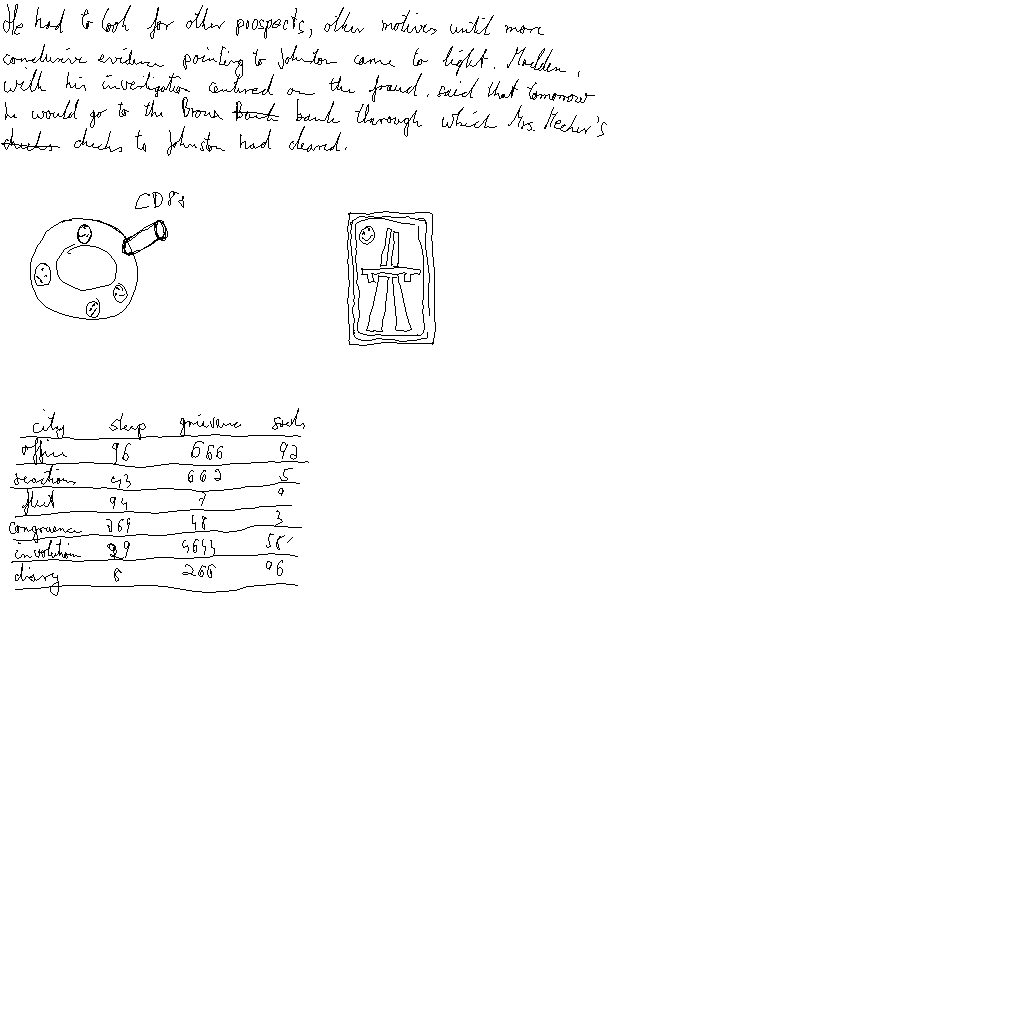 He had to look for other prospects, other motives until more
conclusive evidence pointing to Johnston came to light. Madden,
with his investigation centered on the fraud, said that tomorrow
he would go to the Bronx Bank bank through which Mrs. Meeker's
checks checks to Johnston had cleared.
CD8s
city sleep grievance
office 96 666 92
reactions 43 662 5
fleet 94 7 9
congruence 769 48 3
involution 29 4644 58
diary 8 266 96